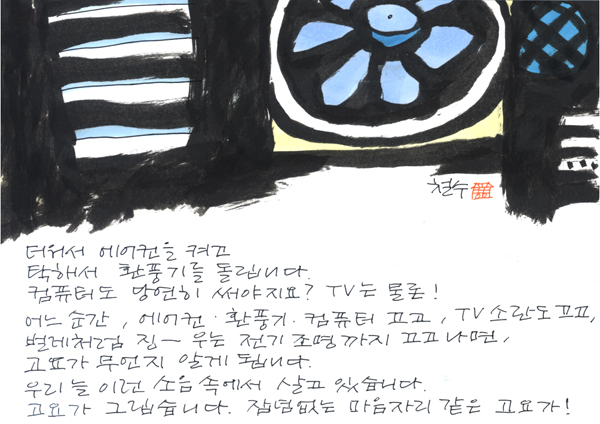 철수
더워서 에어컨을 켜고
탁해서 환풍기를 돌립니다.
컴퓨터도 당연히 써야지요? TV는 물론!
어느 순간, 에어컨·환풍기·컴퓨터 끄고, TV 소란도 끄고,
벌레처럼 징~ 우는 전기 조명까지 끄고 나면,
고요가 무언지 알게 됩니다.
우리 늘 이런 소음 속에서 살고 있습니다.
고요가 그립습니다. 잡념없는 마음자리 같은 고요가!